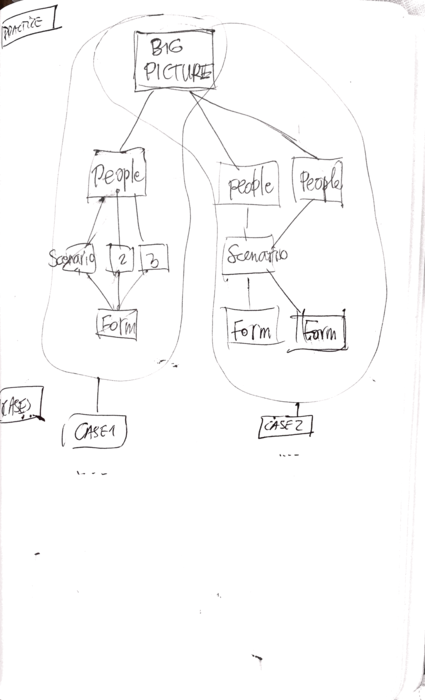 PRACTICE
BIG
PICTURE
People
people
People
Scenario
2
3
Scenario
Form
Form
Form
CASES
CASE1
CASE2